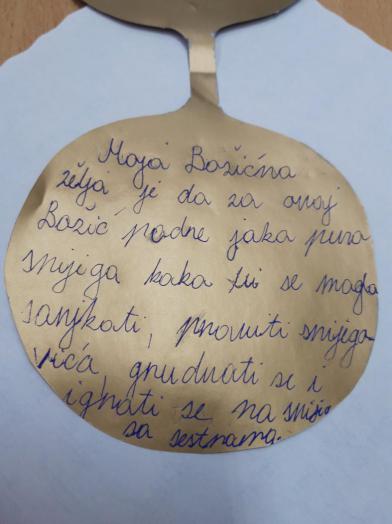 Moja Božićna
želja je da za ovaj
Božić padne jaka puno
snijega kako bi se mogla
sanjkati, praviti snijega-
vića, grudvati se i
igrati se na snijegu
sa sestrama.